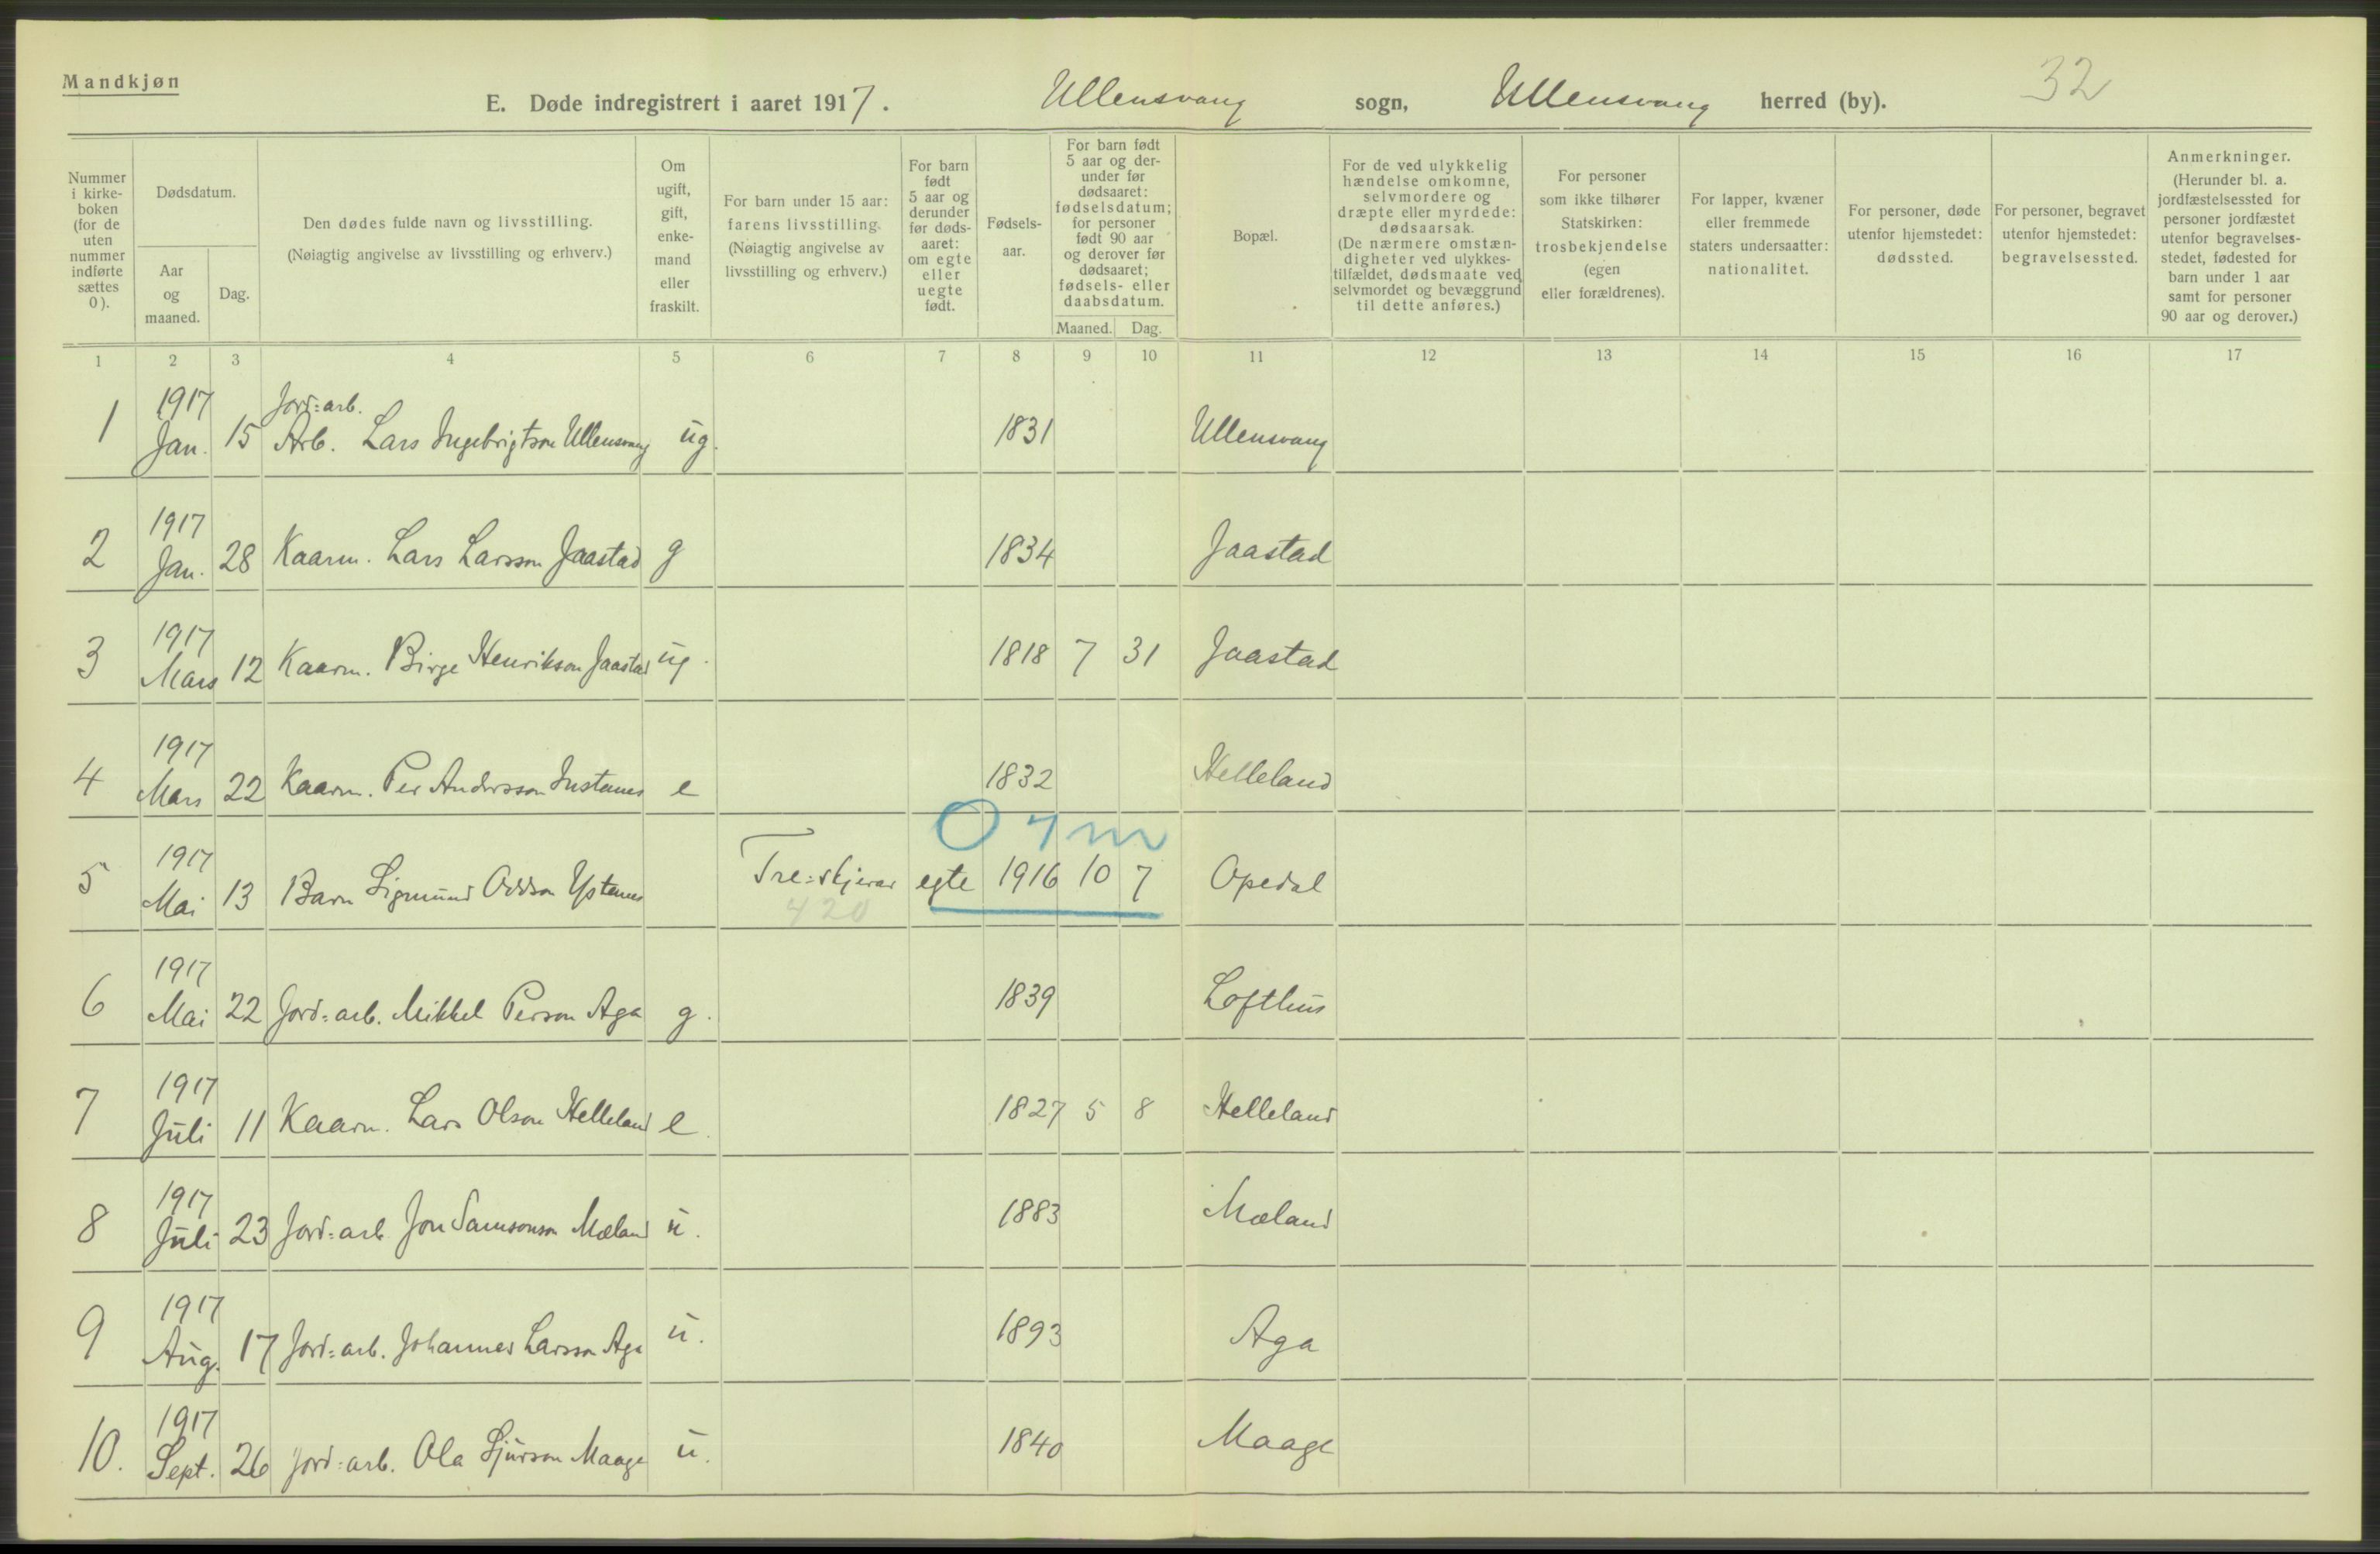 Mandkjøn
E. Døde indregistrert i aaret 1917. Ullensvang sogn, Ullensvang herred (by). 32
Nummer i kirke-boken (for de uten nummer indførte sættes 0).
Dødsdatum.
Aar og maaned.
Dag.
Den dødes fulde navn og livsstilling.
(Nøiagtig angivelse av livsstilling og erhverv.)
Om ugift, gift, enke-mand eller fraskilt.
For barn under 15 aar: farens livsstilling. (Nøiagtig angivelse av livsstilling og erhverv.)
For barn født 5 aar og derunder før døds-aaret: om egte eller uegte født.
Fødsels-aar.
For barn født 5 aar og der-under før dødsaaret: fødselsdatum; for personer født 90 aar og derover før dødsaaret; fødsels- eller daabsdatum.
Maaned. Dag.
Bopæl.
For de ved ulykkelig hændelse omkomne, selvmordere og dræpte eller myrdede: dødsaarsak. (De nærmere omstæn-digheter ved ulykkes-tilfældet, dødsmaate ved selvmordet og bevæggrund til dette anføres.)
For personer som ikke tilhører Statskirken: trosbekjendelse (egen eller forældrenes).
For lapper, kvæner eller fremmede staters undersaatter: nationalitet.
For personer, døde utenfor hjemstedet: dødssted.
For personer, begravet utenfor hjemstedet: begravelsessted.
Anmerkninger. (Herunder bl. a. jordfæstelsessted for personer jordfæstet utenfor begravelses-stedet, fødested for barn under 1 aar samt for personer 90 aar og derover.)
1 2 3 4 5 6 7 8 9 10 11 12 13 14 15 16 17
1917 Jord=arb.
1 Jan. 15 Arb. Lars Ingebrigtson Ullensvang ug. 1831 Ullensvang
1917
2 Jan. 28 Kaarm. Lars Larsson Jaastad g 1834 Jaastad
1917
3 Mars 12 Kaarm. Birge Henrikson Jaastad ug. 1818 7 31 Jaastad
1917
4 Mars 22 Kaarm. Per Andersson Instenes e 1832 Helleland
0 7 m
1917
5 Mai 13 Barn Sigmund Oddson Ystenes Tre=skjerar egte 1916 10 7 Opedal
420
1917
6 Mai 22 Jord=arb. Mikkel Person Aga g. 1839 Lofthus
1917
7 Juli 11 Kaarm. Lars Olson Helleland e. 1827 5 8 Helleland
1917
8 Juli 23 Jord=arb Jon Samsonson Mæland u. 1883 Mæland
1917
9 Aug. 17 Jord=arb. Johannes Larsson Aga u. 1893 Aga
1917
10. Sept. 26 Jord=arb. Ola Sjurson Maage u. 1840 Maage